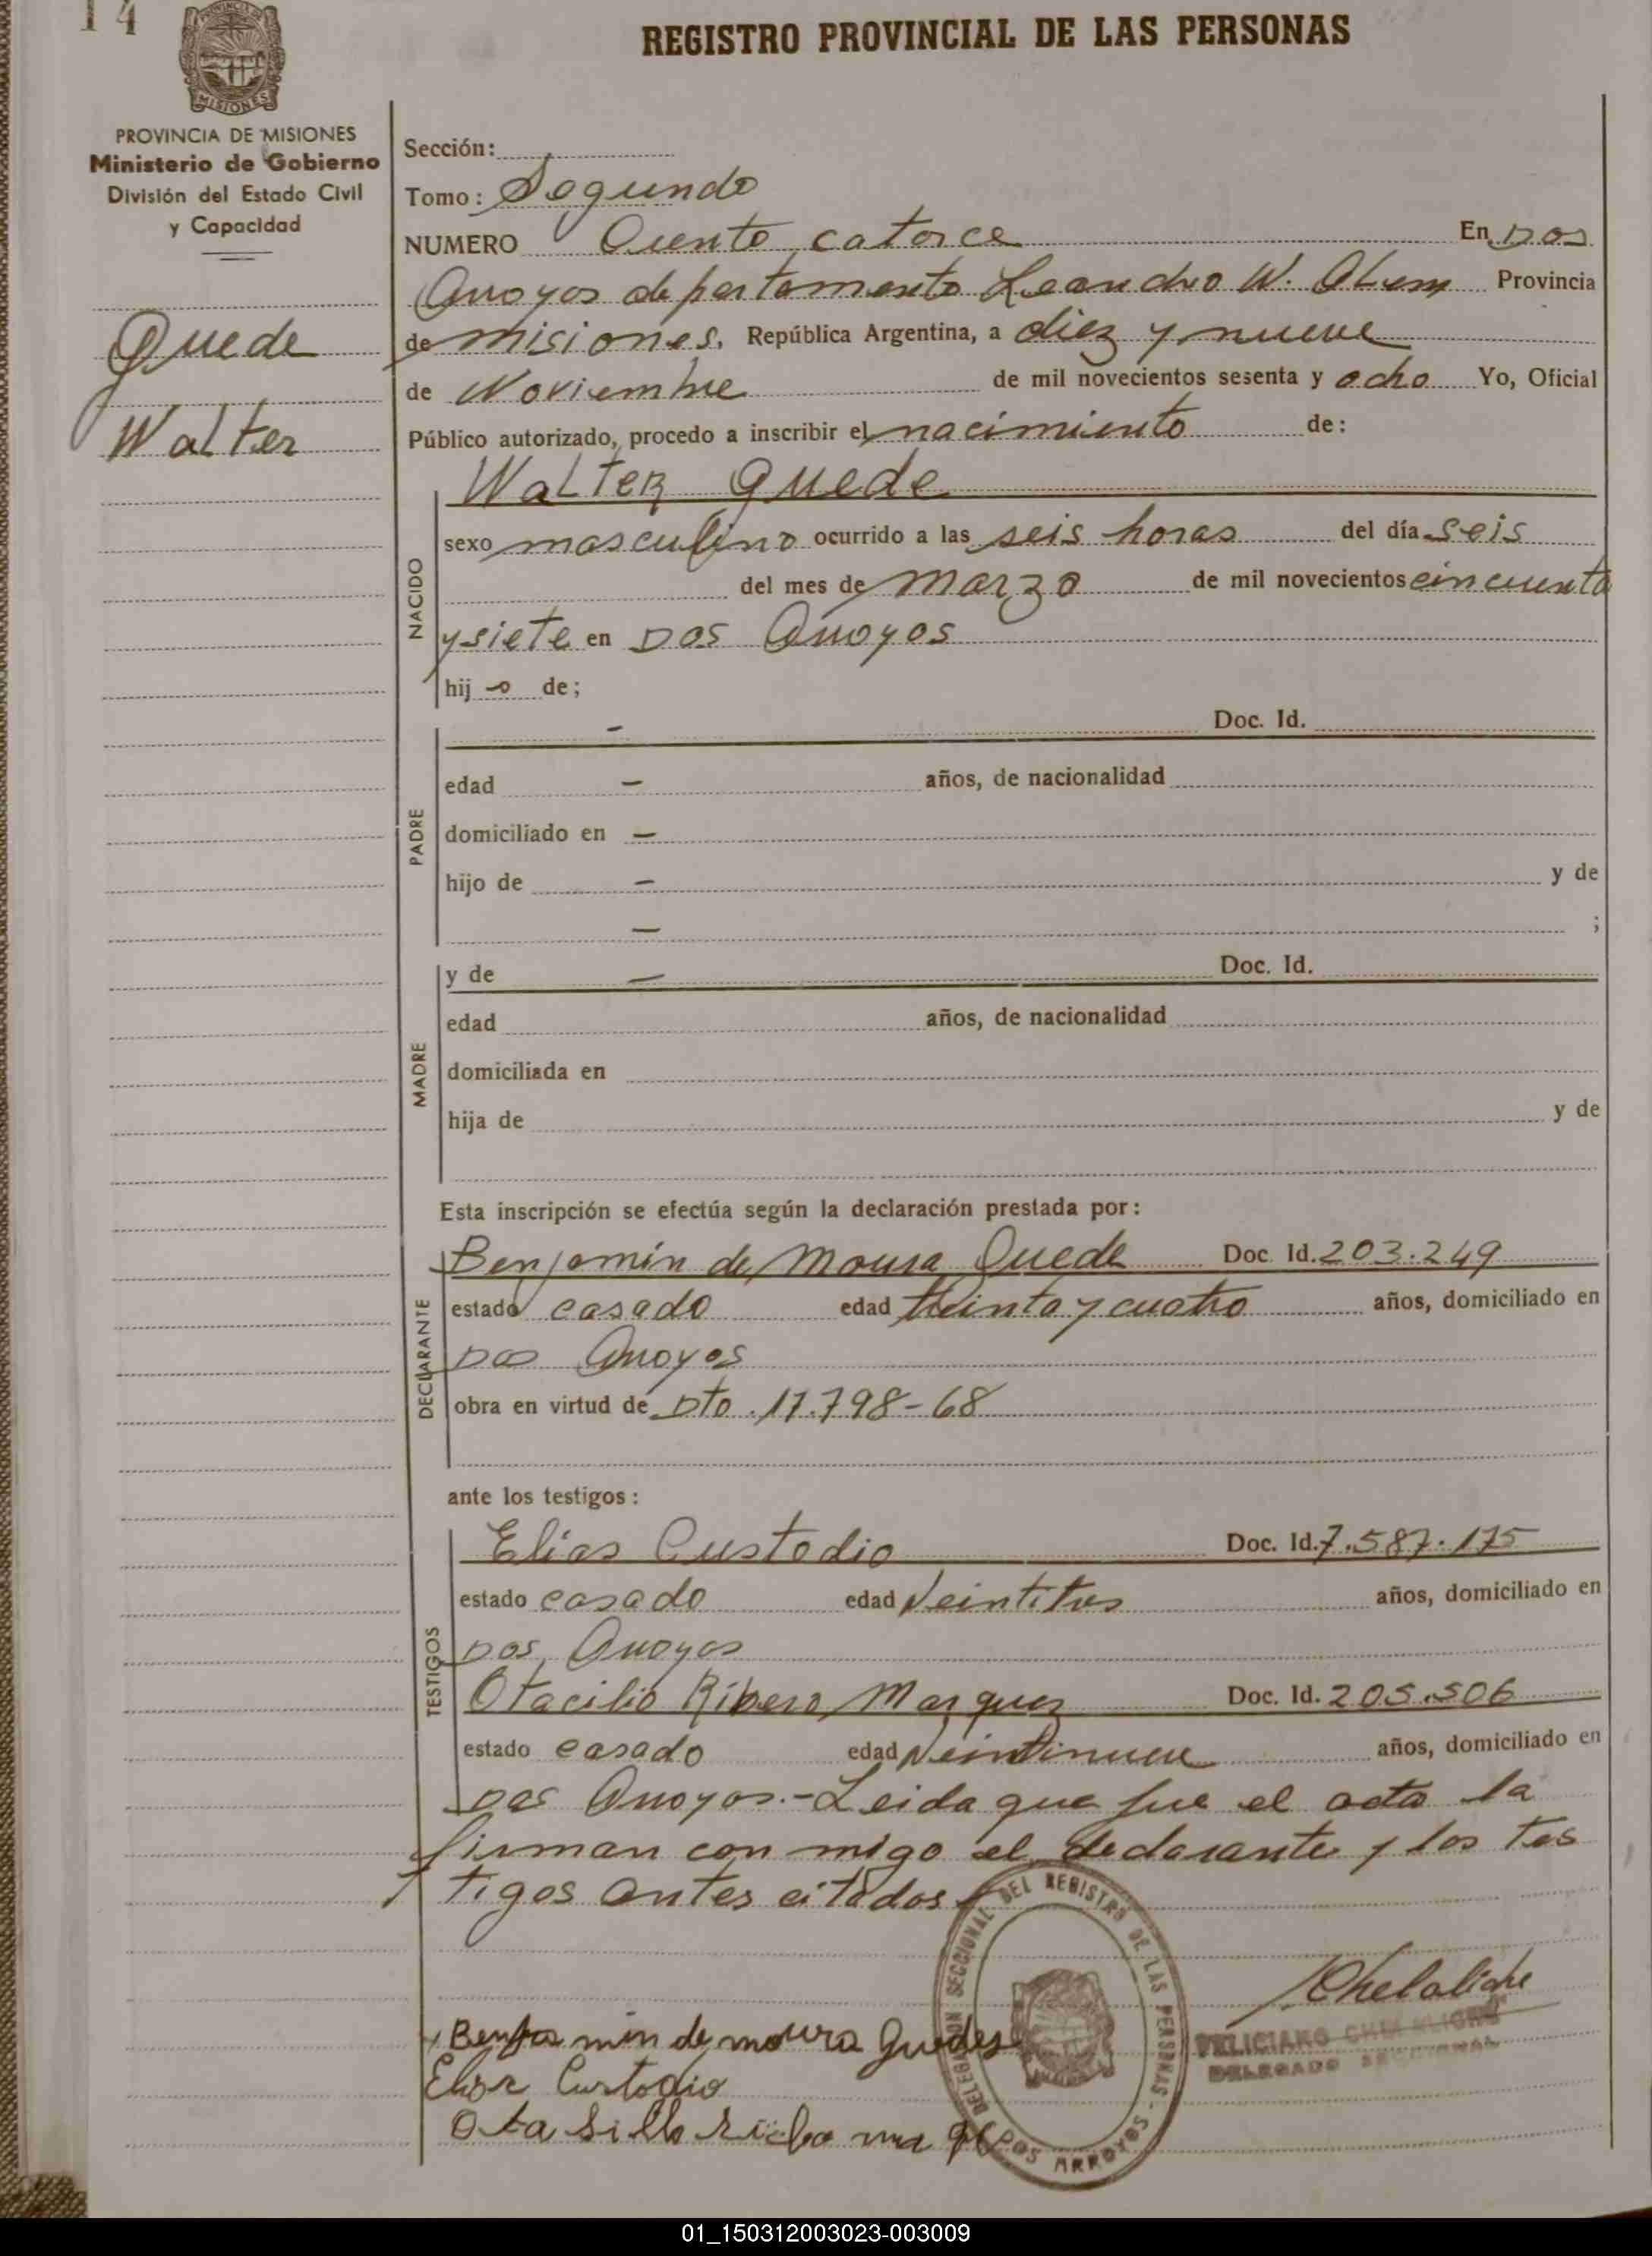 14
REGISTRO PROVINCIAL DE LAS PERSONAS
MISIONES
PROVINCIA DE MISIONES
Ministerio de Gobierno
División del Estado Civil
y Capacidad
Quede
Walter
Sección:
Tomo: Segundo
NUMERO Ciento catorce En Dos
Arroyos departamento Leandro N. Alem Provincia
de misiones, República Argentina, a diez y nueve
de Noviembre de mil novecientos sesenta y ocho Yo, Oficial
Público autorizado, procedo a inscribir el nacimiento de:
Walter Quede
NACIDO
sexo masculino ocurrido a las seis horas del día seis
del mes de marzo de mil novecientos cincuenta
y siete en Dos Arroyos
hijo de;
PADRE
Doc. Id.
edad años, de nacionalidad
domiciliado en
hijo de y de
;
MADRE
y de Doc. Id.
edad años, de nacionalidad
domiciliada en
hija de y de
Esta inscripción se efectúa según la declaración prestada por:
DECLARANTE
Benjamín de Moura Quede Doc. Id. 203.249
estado casado edad treinta y cuatro años, domiciliado en
Dos Arroyos
obra en virtud de Dto. 17.798-68
ante los testigos:
TESTIGOS
Elías Custodio Doc. Id. 7.587.175
estado casado edad Veintitres años, domiciliado en
Dos Arroyos
Otacilio Ribero Marquez Doc. Id. 205.506
estado casado edad Veintinueve años, domiciliado en
Dos Arroyos.- Leida que fue el acta la
firman con migo el declarante y los tes
tigos antes citados
DELEGACION SECCIONAL DEL REGISTRO DE LAS PERSONAS - DOS ARROYOS -
FELICIANO
DELEGADO SECCIONAL
Benjamin de moura Guedes
Elias Custodio
01_150312003023-003009